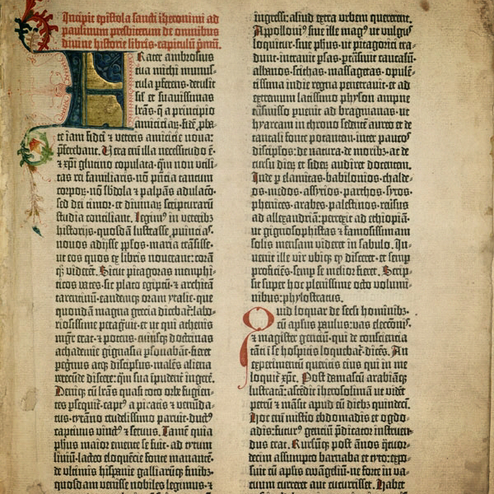 Incipit epistola sancti iheronimi ad
paulinum presbiterum de omnibus
divine historie libris. capitulū pmū.
Frater ambrosius
tua michi munus-
cula pferens. detulit
sil et suavissimas
lrās. q̄ a principio
amiciciaꝝ. fidē pba-
te iam fidei et veteris amicicie nova:
pferebant. Vera eni illa necessitudo ē.
et xpi glutino copulata. qm̄ non utili-
tas rei familiaris. nō pn̄tia tantum
corpoꝝ. nō sbdola et palpās adulaco:
sed dei timor. et divinaꝝ scripturarū
studia conciliant. Legimꝰ in veteribꝫ
historijs. quosdā lustrasse puincias.
novos adijsse pplos. maria trāsisse.
ut eos quos ex libris noverant: corā
qꝫ viderēt. Sicut pitagoras memphi-
ticos vates. sic plato egiptū. et architā
tarentinū. eandemqꝫ oram ytalie. que
quondam magna grecia dicebat: labo-
riosissime peragravit. et ut qui athenis
mgr̄ erat. et potens. cuiusqꝫ doctrinas
achademie gignasia psonabāt. fieret
peginꝰ atqꝫ discipulꝰ. malēs aliena
verecunde discere: qm̄ sua impudent̄ ingerere.
Deniqꝫ cū lrās quasi toto orbe fugien-
tes psequit̄. captꝰ a piratis et venūda-
tus. tyranno crudelissimo paruit. ductꝰ
captivus vinctꝰ et servus. Tamē quia
phūs maior emente se fuit. ad tytum
liviū. lacteo eloquētie fonte manantē.
de ultimis hispanie galliarūqꝫ finibꝫ.
quosdam venisse nobiles legimus. et
ingressi: aliud extra urbem quererent.
Appolloniꝰ sive ille magꝰ ut vulgus
loquitur. sive phūs. ut pitagorici tra-
dunt. intravit psas. ptrāsivit caucasū.
albanos. scithas. massagetas. opulē-
tissima indie regna penetravit. et ad
extremum latissimo phison amne
trāsmisso puenit ad bragmanas. ut
hyarcam in throno sedentē aureo. et de
tantali fonte potantem. inter paucos
discipulos. de natura. de moribꝫ ac de
cursu diei et siderū audiret docentem.
Inde p elamitas. babilonios. chalde-
os. medos. assirios. parthos. syros.
phenices. arabes. palestinos. reversus
ad allexandriā: perrexit ad ethiopiā.
ut gignosophistas et famosissimam
solis mensam videret in sabulo. In-
venit ille vir ubiqꝫ qd̄ disceret: et semp
proficiēs. semp se melior fieret. Scrip-
sit super hoc plenissime octo volumi-
nibus: phylostratus.
Quid loquar de seculi hominibꝫ.
cū apl̄us paulus: vas electōnis.
et magister genciū. qui de consciencia
tāti ī se hospitis loquebat̄. dicēs. An
experimentū queritis eius qui in me
loquit̄ xp̄c. Post damascū arabiāqꝫ
lustratā: ascēdit iherosolimā ut videret
petrū et māsit apud eū diebꝫ quindeci.
Hoc eni misterio ebdomadis et ogdo-
adis: futurꝰ genciū pdicator instruen-
dus erat. Rursūqꝫ post annos q̄tuor-
decim assumpto barnaba et tyto: expo-
suit cū aplis euangeliū: ne forte in va-
cuum curreret aut cucurrisset. Habet